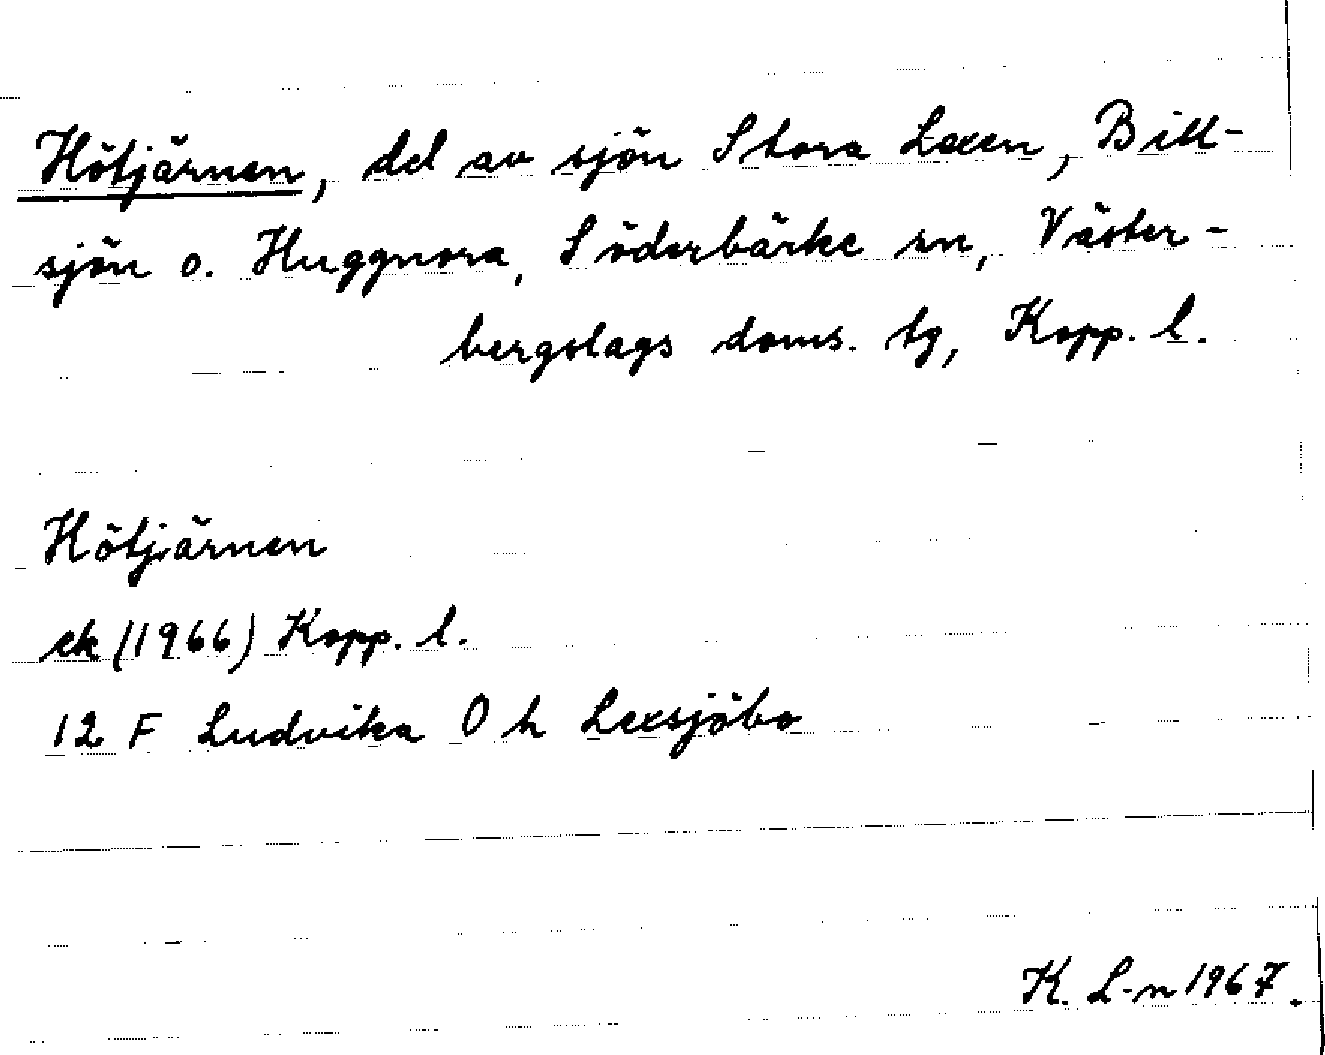 Hötjärnen, del av sjön Stora Lexen, Bitt-
sjön o. Huggnora, Söderbärke sn, Väster-
bergslags doms. tg, Kopp. l.
Hötjärnen
ek (1966) Kopp. l.
12 F Ludvika O h Lexsjöbo
K. L-n 1967.